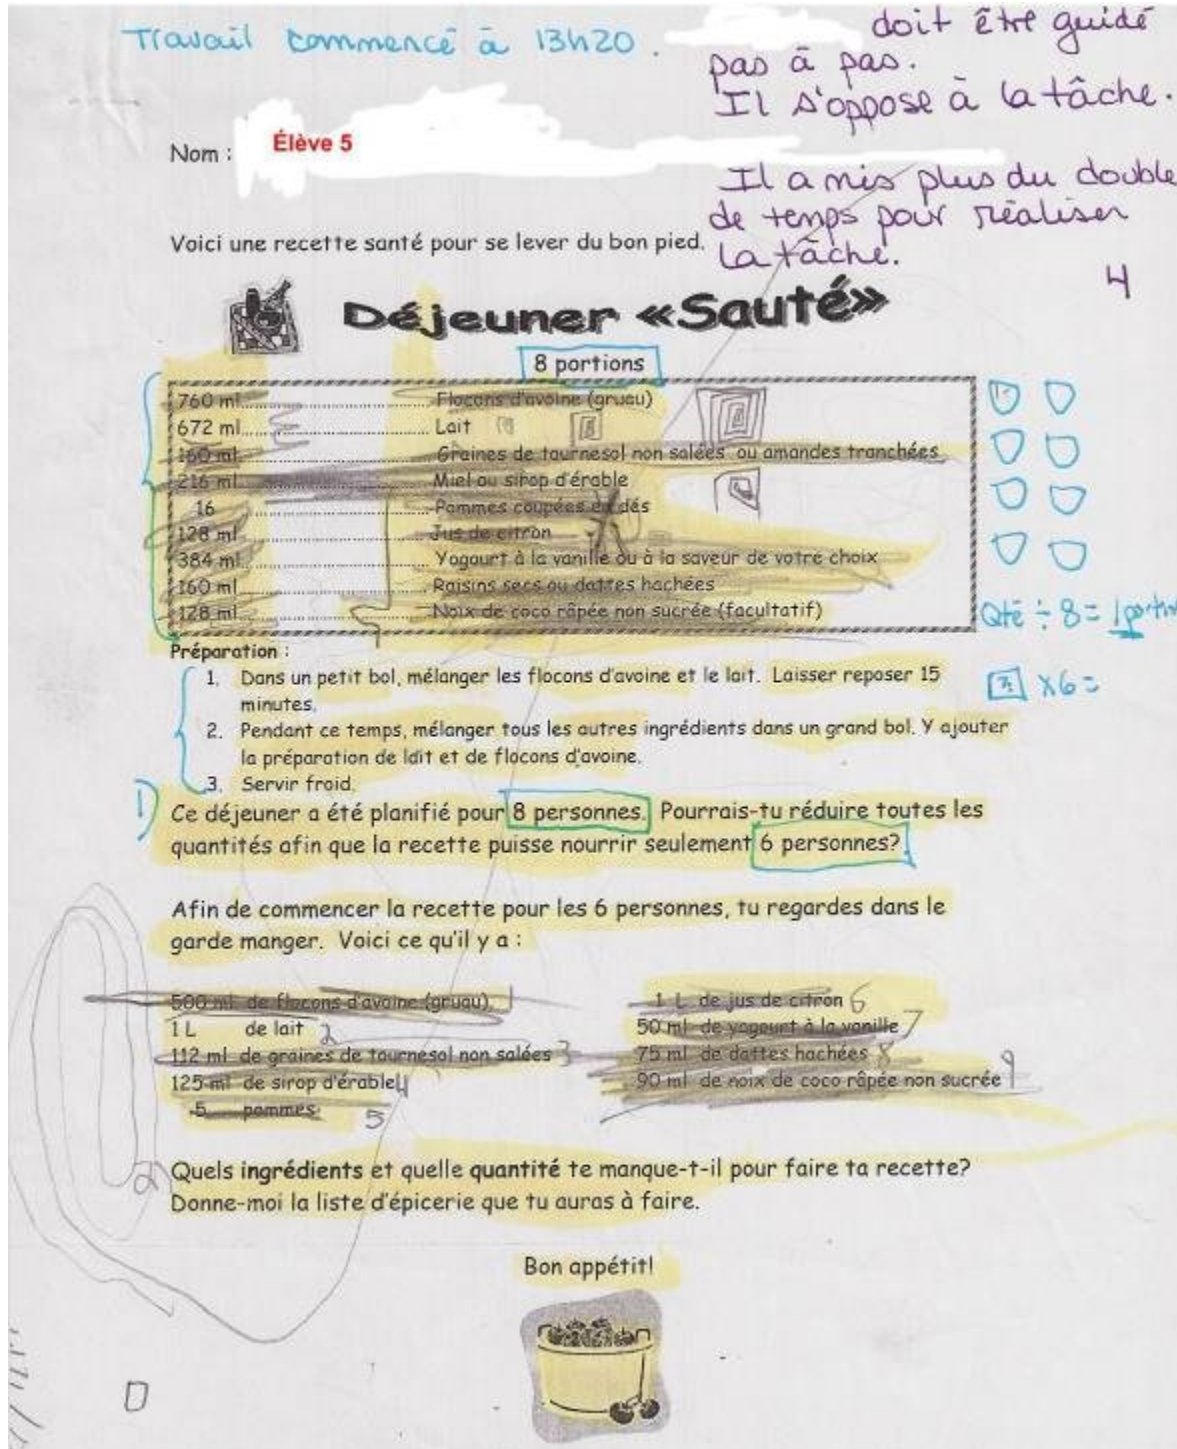 Travail commencé à 13h20.
doit être guidé
pas à pas.
Il s'oppose à la tâche.
Nom : Élève 5
Il a mis plus du double
de temps pour réaliser
la tâche.
4
Voici une recette santé pour se lever du bon pied.
Déjeuner «Sauté»
8 portions
760 ml.............................. Flocons d'avoine (gruau)
672 ml.............................. Lait
160 ml.............................. Graines de tournesol non salées ou amandes tranchées
216 ml.............................. Miel ou sirop d'érable
16 .............................. Pommes coupées en dés
128 ml.............................. Jus de citron
384 ml.............................. Yogourt à la vanille ou à la saveur de votre choix
160 ml.............................. Raisins secs ou dattes hachées
128 ml.............................. Noix de coco râpée non sucrée (facultatif)
Qté ÷ 8 =
Préparation :
1. Dans un petit bol, mélanger les flocons d'avoine et le lait. Laisser reposer 15
minutes.
x6 =
2. Pendant ce temps, mélanger tous les autres ingrédients dans un grand bol. Y ajouter
la préparation de lait et de flocons d'avoine.
3. Servir froid.
1) Ce déjeuner a été planifié pour 8 personnes. Pourrais-tu réduire toutes les
quantités afin que la recette puisse nourrir seulement 6 personnes?
Afin de commencer la recette pour les 6 personnes, tu regardes dans le
garde manger. Voici ce qu'il y a :
500 ml de flocons d'avoine (gruau) 1
1 L de lait 2
112 ml de graines de tournesol non salées 3
125 ml de sirop d'érable 4
5 pommes 5
1 L de jus de citron 6
50 ml de yogourt à la vanille 7
75 ml de dattes hachées 8
90 ml de noix de coco râpée non sucrée 9
2 Quels ingrédients et quelle quantité te manque-t-il pour faire ta recette?
Donne-moi la liste d'épicerie que tu auras à faire.
Bon appétit!